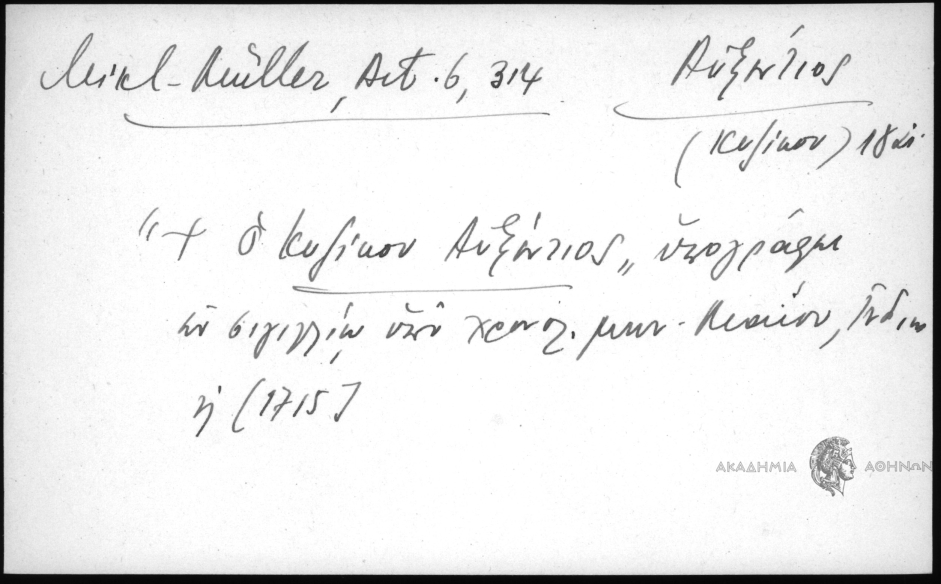 Mikl-Müller, Act. 6, 314
Αὐξέντιος
(Κυζίκου) 18 αἰ.
"+ ὁ Κυζίκου Αὐξέντιος„ ὑπογράφει
ἐν σιγιλλίῳ ὑπὸ χρονολ. μην. Μαΐου, Ἰνδικ
ή (1715]
ΑΚΑΔΗΜΙΑ ΑΘΗΝΩΝ